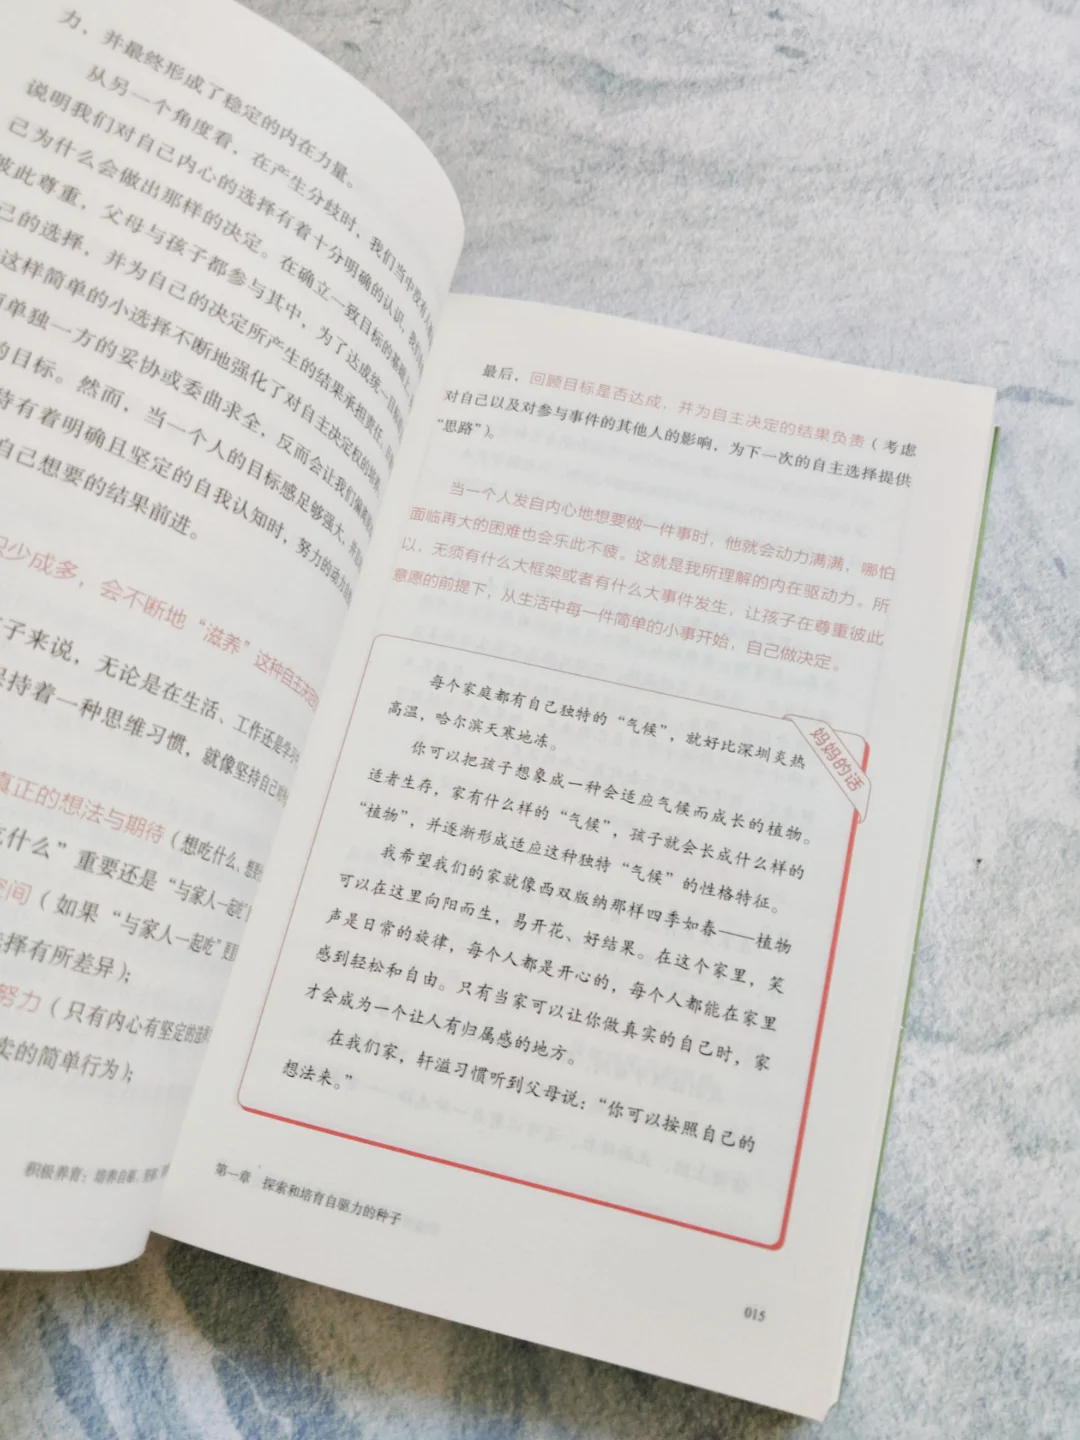 力，并最终形成了稳定的内在力量。
从另一个角度看，在产生分歧时，我们当中没有人
说明我们对自己内心的选择有着十分明确的认识，我们
己为什么会做出那样的决定。在确立一致目标的基础上，
彼此尊重，父母与孩子都参与其中，为了达成统一目标
己的选择，并为自己的决定所产生的结果承担责任。
这样简单的小选择不断地强化了对自主决定权的培养。
单独一方的妥协或委曲求全，反而会让我们偏离
的目标。然而，当一个人的目标感足够强大，并
持有着明确且坚定的自我认知时，努力的动力
自己想要的结果前进。
积少成多，会不断地“滋养”这种自主决定
孩子来说，无论是在生活、工作还是学习
保持着一种思维习惯，就像坚持自己
真正的想法与期待（想吃什么、
吃什么”重要还是“与家人一起吃”
空间（如果“与家人一起吃”更
选择有所差异）；
努力（只有内心有坚定的选择
的简单行为）；
积极养育：培养自驱、
最后，回顾目标是否达成，并为自主决定的结果负责（考虑
对自己以及对参与事件的其他人的影响，为下一次的自主选择提供
“思路”）。
当一个人发自内心地想要做一件事时，他就会动力满满，哪怕
面临再大的困难也会乐此不疲。这就是我所理解的内在驱动力。所
以，无须有什么大框架或者有什么大事件发生，让孩子在尊重彼此
意愿的前提下，从生活中每一件简单的小事开始，自己做决定。
妈妈的话
每个家庭都有自己独特的“气候”，就好比深圳炎热
高温，哈尔滨天寒地冻。
你可以把孩子想象成一种会适应气候而成长的植物。
适者生存，家有什么样的“气候”，孩子就会长成什么样的
“植物”，并逐渐形成适应这种独特“气候”的性格特征。
我希望我们的家就像西双版纳那样四季如春——植物
可以在这里向阳而生，易开花、好结果。在这个家里，笑
声是日常的旋律，每个人都是开心的，每个人都能在家里
感到轻松和自由。只有当家可以让你做真实的自己时，家
才会成为一个让人有归属感的地方。
在我们家，轩溢习惯听到父母说：“你可以按照自己的
想法来。”
第一章 探索和培育自驱力的种子
015